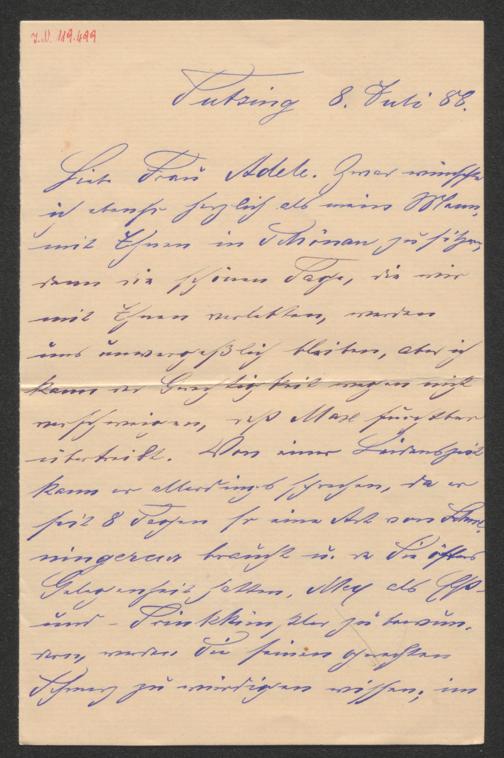 J.N. 119.499
Tutzing 8. Juli 88.
Liebe Frau Adele. Zwar wünschte
ich ebenso herzlich als mein Mann,
mit Ihnen in Schönau zu sitzen,
denn die schönen Tage, die wir
mit Ihnen verlebten, werden
uns unvergeßlich bleiben, aber ich
kann der Gerechtigkeit wegen nicht
verschweigen, daß Max furchtbar
übertreibt. Von einer Leidenszeit
kann er allerdings sprechen, da er
seit 8 Tagen so eine Art von
braucht u. da Sie öfters
Gelegenheit hatten, Max als Eß-
und - Trinkkünstler zu bewun-
dern, werden Sie seinen gerechten
Schmerz zu würdigen wissen; im